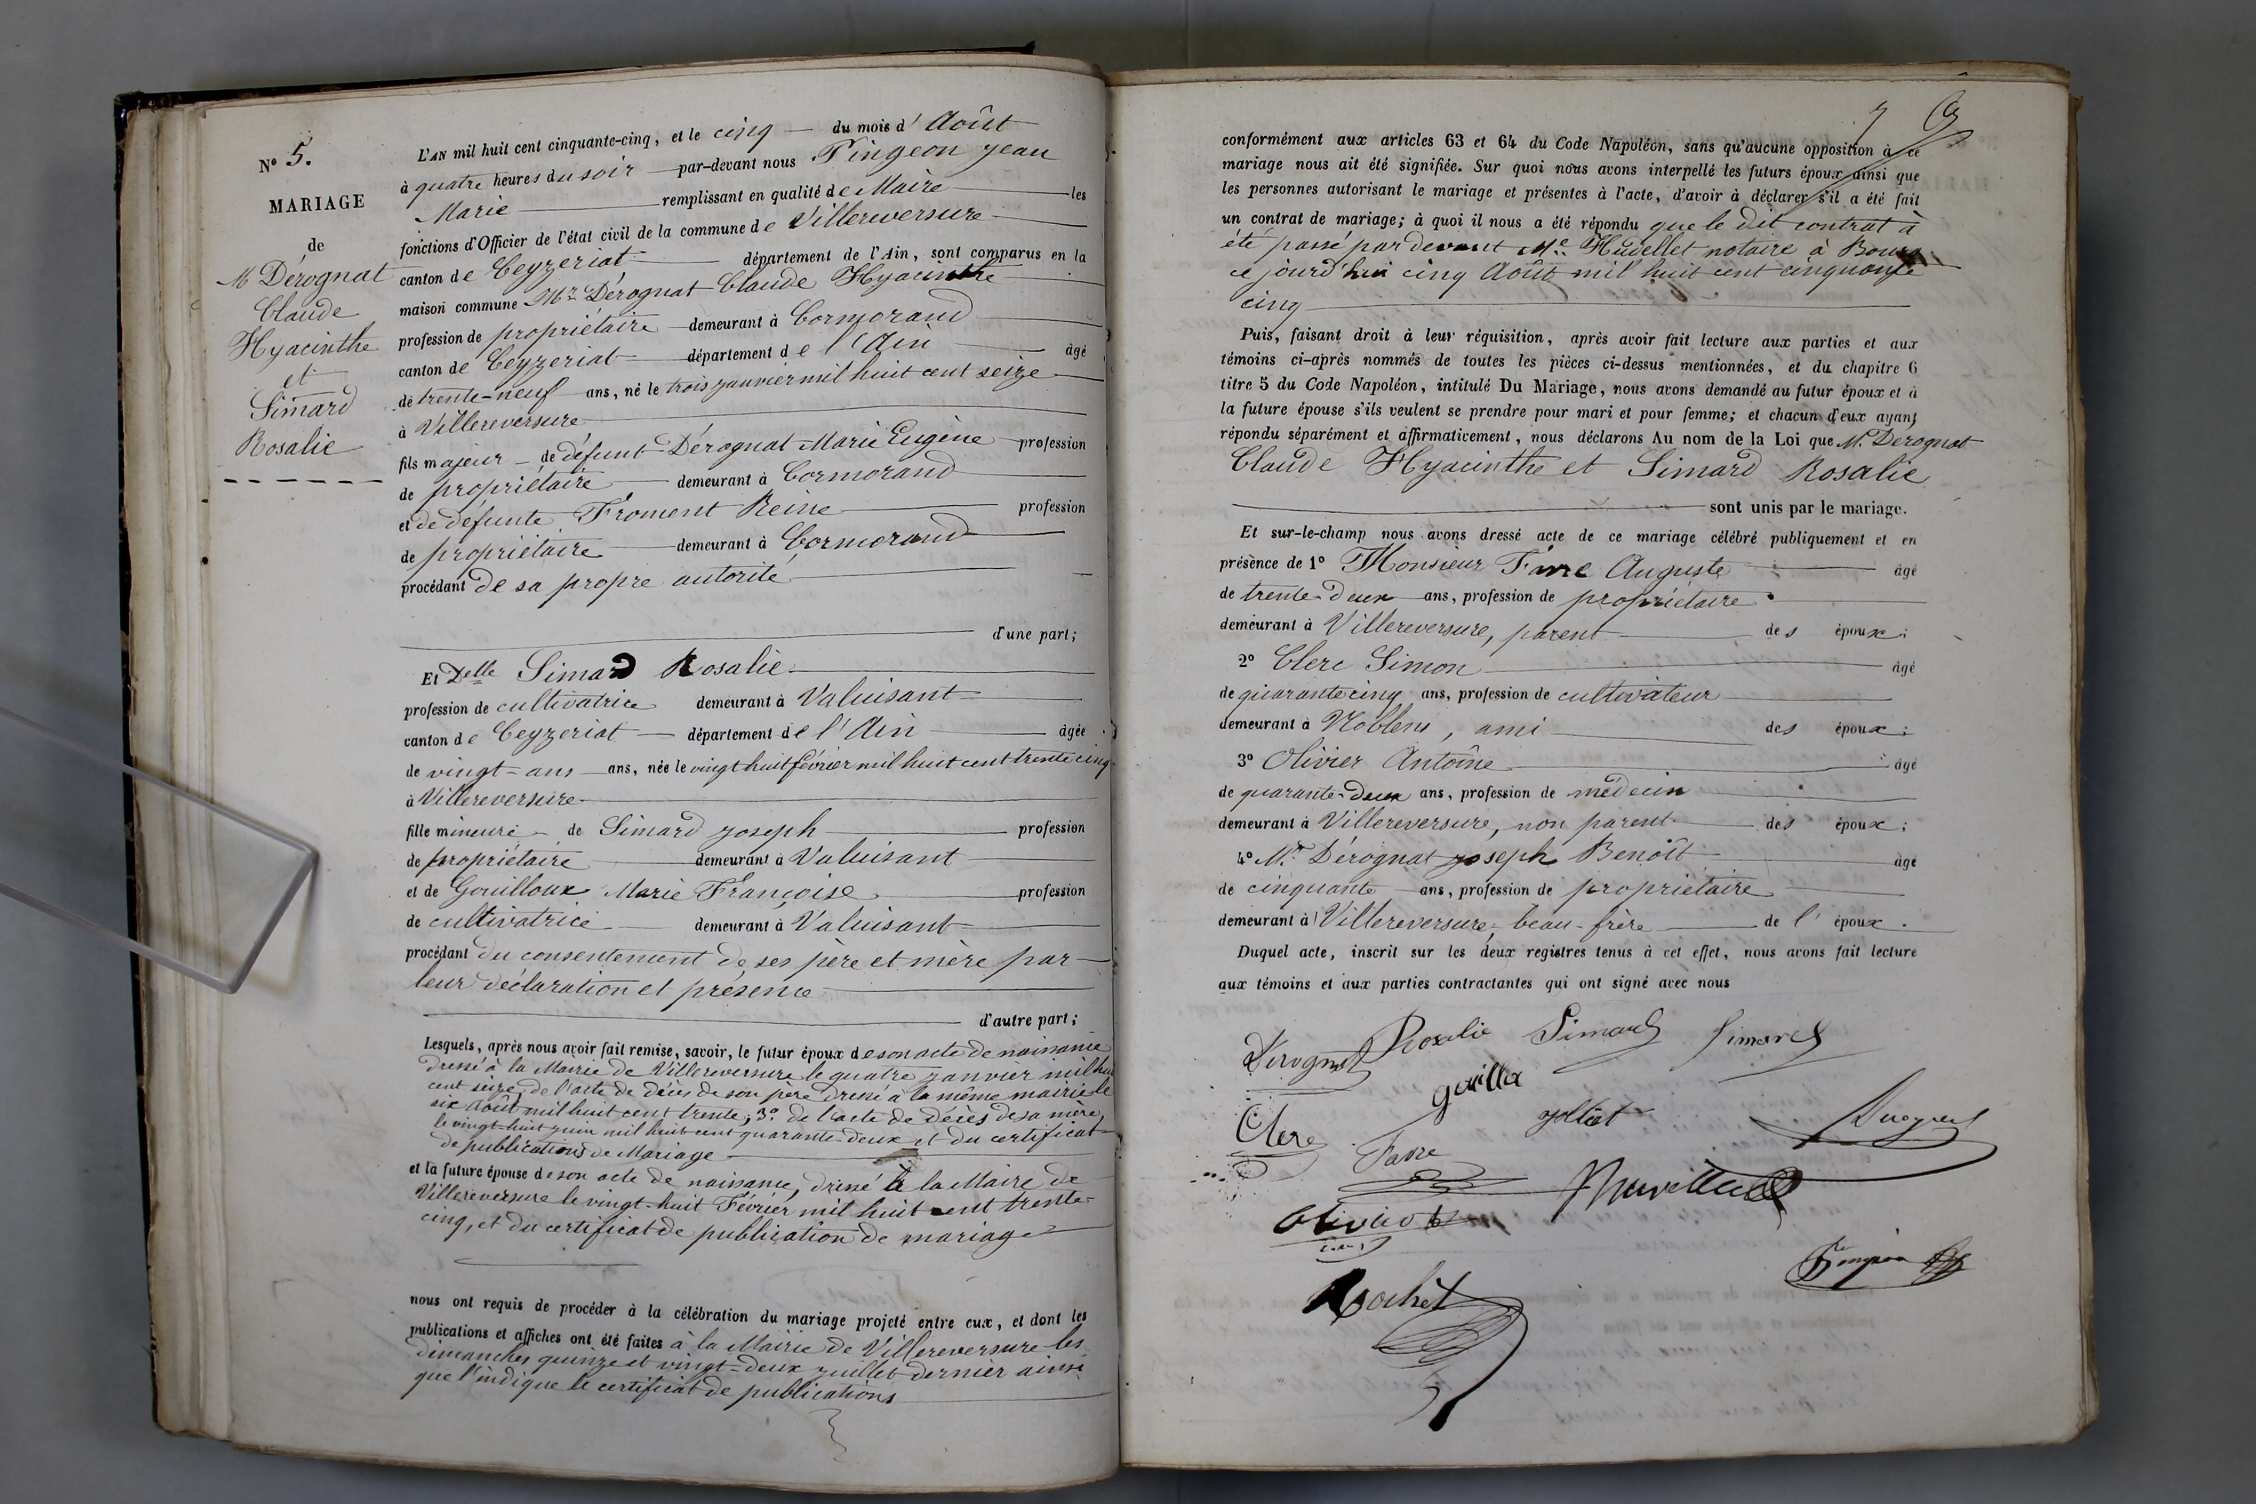 N° 5.
MARIAGE
de
M Dérognat
Claude
Hyacinthe
et
Simard
Rosalie
L'AN mil huit cent cinquante-cinq, et le cinq du mois d'Août
à quatre heures du soir par-devant nous Pingeon Jean
Marie remplissant en qualité de Maire les
fonctions d'Officier de l'état civil de la commune de Villereversure
canton de Ceyzeriat département de l'Ain, sont comparus en la
maison commune Mr Dérognat Claude Hyacinthe
profession de propriétaire demeurant à Cormorand
canton de Ceyzeriat département de l'Ain âgé
de trente-neuf ans, né le trois janvier mil huit cent seize
à Villereversure
fils majeur de défunt Dérognat Marie Eugène profession
de propriétaire demeurant à Cormorand
et de défunte Froment Reine profession
de propriétaire demeurant à Cormorand
procédant de sa propre autorité
d'une part;
Et Delle Simard Rosalie
profession de cultivatrice demeurant à Valuisant
canton de Ceyzeriat département de l'Ain âgée
de vingt-ans ans, née le vingt huit février mil huit cent trente cinq
à Villereversure
fille mineure de Simard Joseph profession
de propriétaire demeurant à Valuisant
et de Gouilloux Marie Françoise profession
de cultivatrice demeurant à Valuisant
procédant du consentement de ses père et mère par
leur déclaration et présence
d'autre part;
Lesquels, après nous avoir fait remise, savoir, le futur époux de son acte de naissance
dressé à la Mairie de Villereversure le quatre janvier mil huit
cent seize, de l'acte de décès de son père dressé à la même mairie le
six Août mil huit cent trente, 3° de l'acte de décès de sa mère,
le vingt-huit juin mil huit cent quarante-deux et du certificat
de publications de Mariage
et la future épouse de son acte de naissance, dressé à la Maire de
Villereversure le vingt-huit Février mil huit cent trente-
cinq, et du certificat de publication de mariage
nous ont requis de procéder à la célébration du mariage projeté entre eux, et dont les
publications et affiches ont été faites à la Mairie de Villereversure les
dimanches quinze et vingt-deux juillet dernier ainsi
que l'indique le certificat de publications
7
conformément aux articles 63 et 64 du Code Napoléon, sans qu'aucune opposition à ce
mariage nous ait été signifiée. Sur quoi nous avons interpellé les futurs époux ainsi que
les personnes autorisant le mariage et présentes à l'acte, d'avoir à déclarer s'il a été fait
un contrat de mariage; à quoi il nous a été répondu que le dit contrat à
été passé par devant Me Hudellet notaire à Bourg
ce jourd'hui cinq Août mil huit cent cinquante
cinq
Puis, faisant droit à leur réquisition, après avoir fait lecture aux parties et aux
témoins ci-après nommés de toutes les pièces ci-dessus mentionnées, et du chapitre 6
titre 5 du Code Napoléon, intitulé Du Mariage, nous avons demandé au futur époux et à
la future épouse s'ils veulent se prendre pour mari et pour femme; et chacun d'eux ayant
répondu séparément et affirmativement, nous déclarons Au nom de la Loi que Mr Dérognat
Claude Hyacinthe et Simard Rosalie
sont unis par le mariage.
Et sur-le-champ nous avons dressé acte de ce mariage célébré publiquement et en
présence de 1° Monsieur Favre Auguste âgé
de trente-deux ans, profession de propriétaire
demeurant à Villereversure, parent des époux;
2° Clerc Simon âgé
de quarante cinq ans, profession de cultivateur
demeurant à Noblens, ami des époux;
3° Olivier Antoine âgé
de quarante-deux ans, profession de médecin
demeurant à Villereversure, non parent des époux;
4° Mr Dérognat Joseph Benoît âgé
de cinquante ans, profession de propriétaire
demeurant à Villereversure, beau-frère de l'époux.
Duquel acte, inscrit sur les deux registres tenus à cet effet, nous avons fait lecture
aux témoins et aux parties contractantes qui ont signé avec nous
Dérognat Rosalie Simard Simard
Clerc Favre
Olivier
Pingeon
Rochet